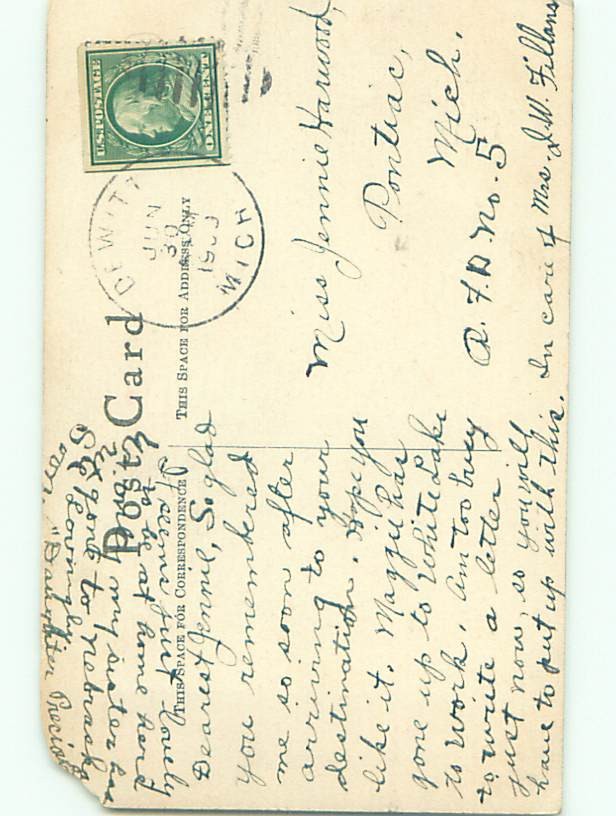 Post Card
THIS SPACE FOR CORRESPONDENCE
THIS SPACE FOR ADDRESS ONLY
U.S. POSTAGE
ONE CENT
DEWITT
JUN
30
1909
MICH
Dearest Jennie, So glad
you remembered
me so soon after
arriving to your
destination. Hope you
like it. Maggie has
gone up to White Lake
to work. Am too busy
to write a letter
just now, so you will
have to put up with this.
It seems just lovely
to be at home and
my sister has
gone to Nebraska
Lovingly
"Daughter Precious
Miss Jennie Harwood,
Pontiac,
Mich.
R.F.D. No. 5
In care of Mrs. J.W. Fillans